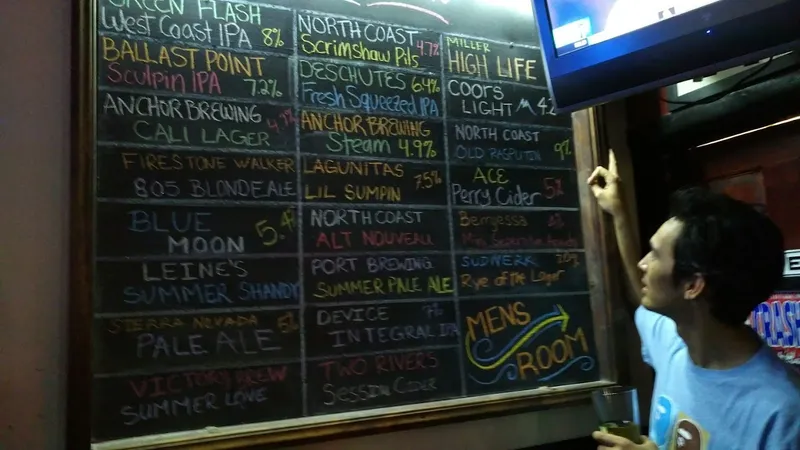 GREEN FLASH
West Coast IPA 8%
BALLAST POINT
Sculpin IPA 7.2%
ANCHOR BREWING
CALI LAGER 4.9%
FIRESTONE WALKER
805 BLONDE ALE
BLUE
MOON 5.4
LEINE'S
SUMMER SHANDY
SIERRA NEVADA
PALE ALE
VICTORY BREW
SUMMER LOVE
NORTH COAST
Scrimshaw Pils 4.7%
DESCHUTES 6.4%
Fresh Squeezed IPA
ANCHOR BREWING
Steam 4.9%
LAGUNITAS
LIL SUMPIN 7.5%
NORTH COAST
ALT NOUVEAU
PORT BREWING
SUMMER PALE ALE
DEVICE
INTEGRAL IPA
TWO RIVERS
Session CIDER
MILLER
HIGH LIFE
COORS
LIGHT 4.2
NORTH COAST
OLD RASPUTIN 9%
ACE
Perry Cider 5%
Berryessa
SUDWERK
Rye of the Lager
MENS
ROOM